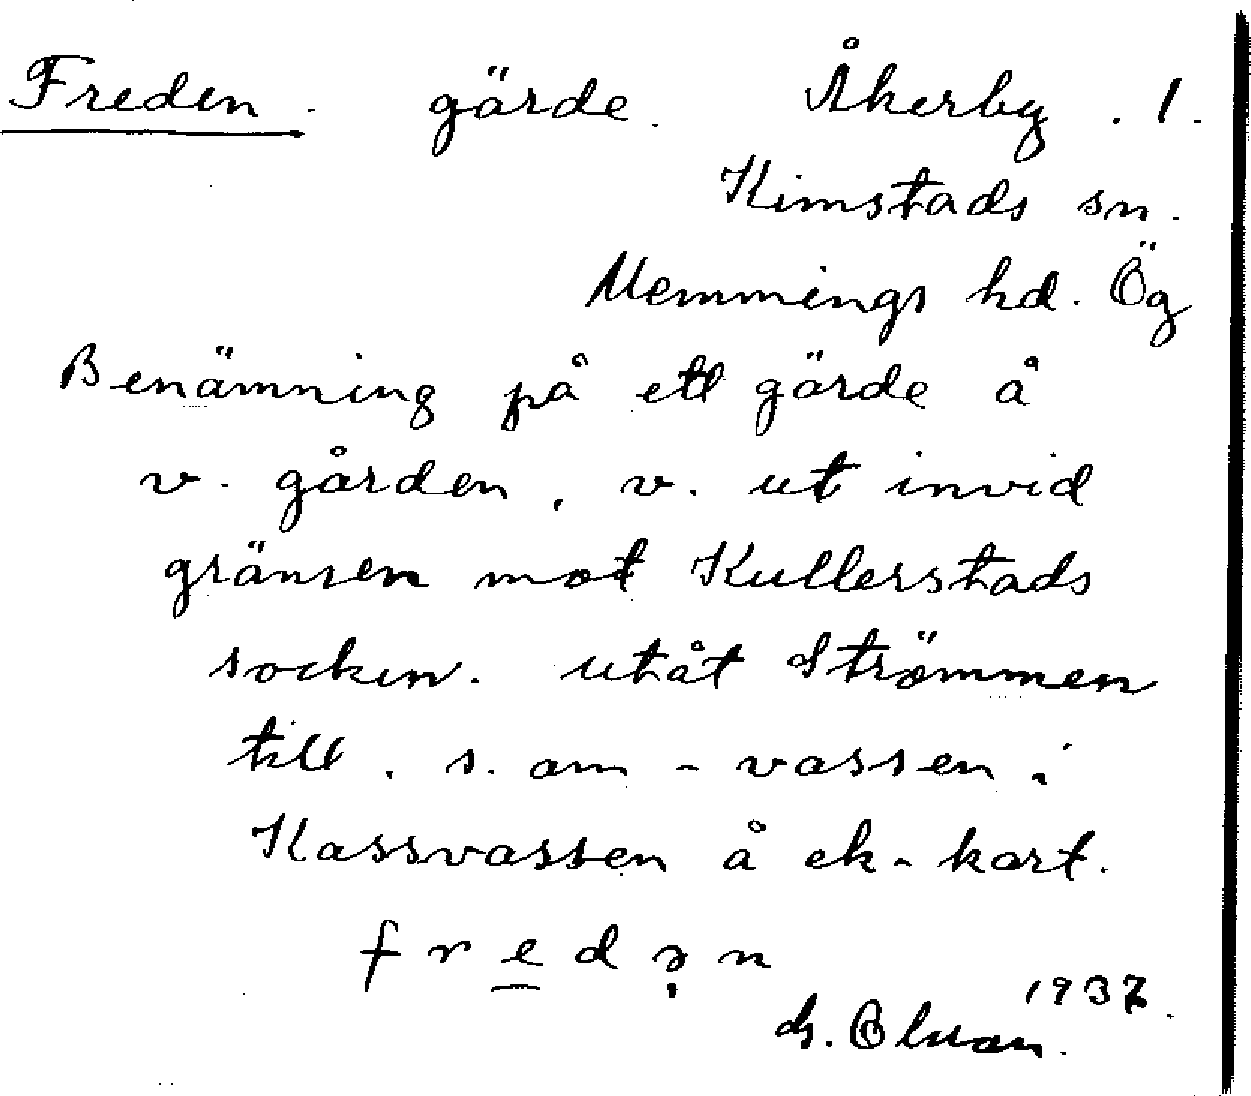 Freden. gärde. Åkerby. 1.
Kimstads sn.
Memmings hd. Ög
Benämning på ett gärde å
v. gården, v. ut invid
gränsen mot Kullerstads
socken. utåt Strömmen
till. s. om - vassen i
Kassvassen å ek-kart.
fredən
1937.